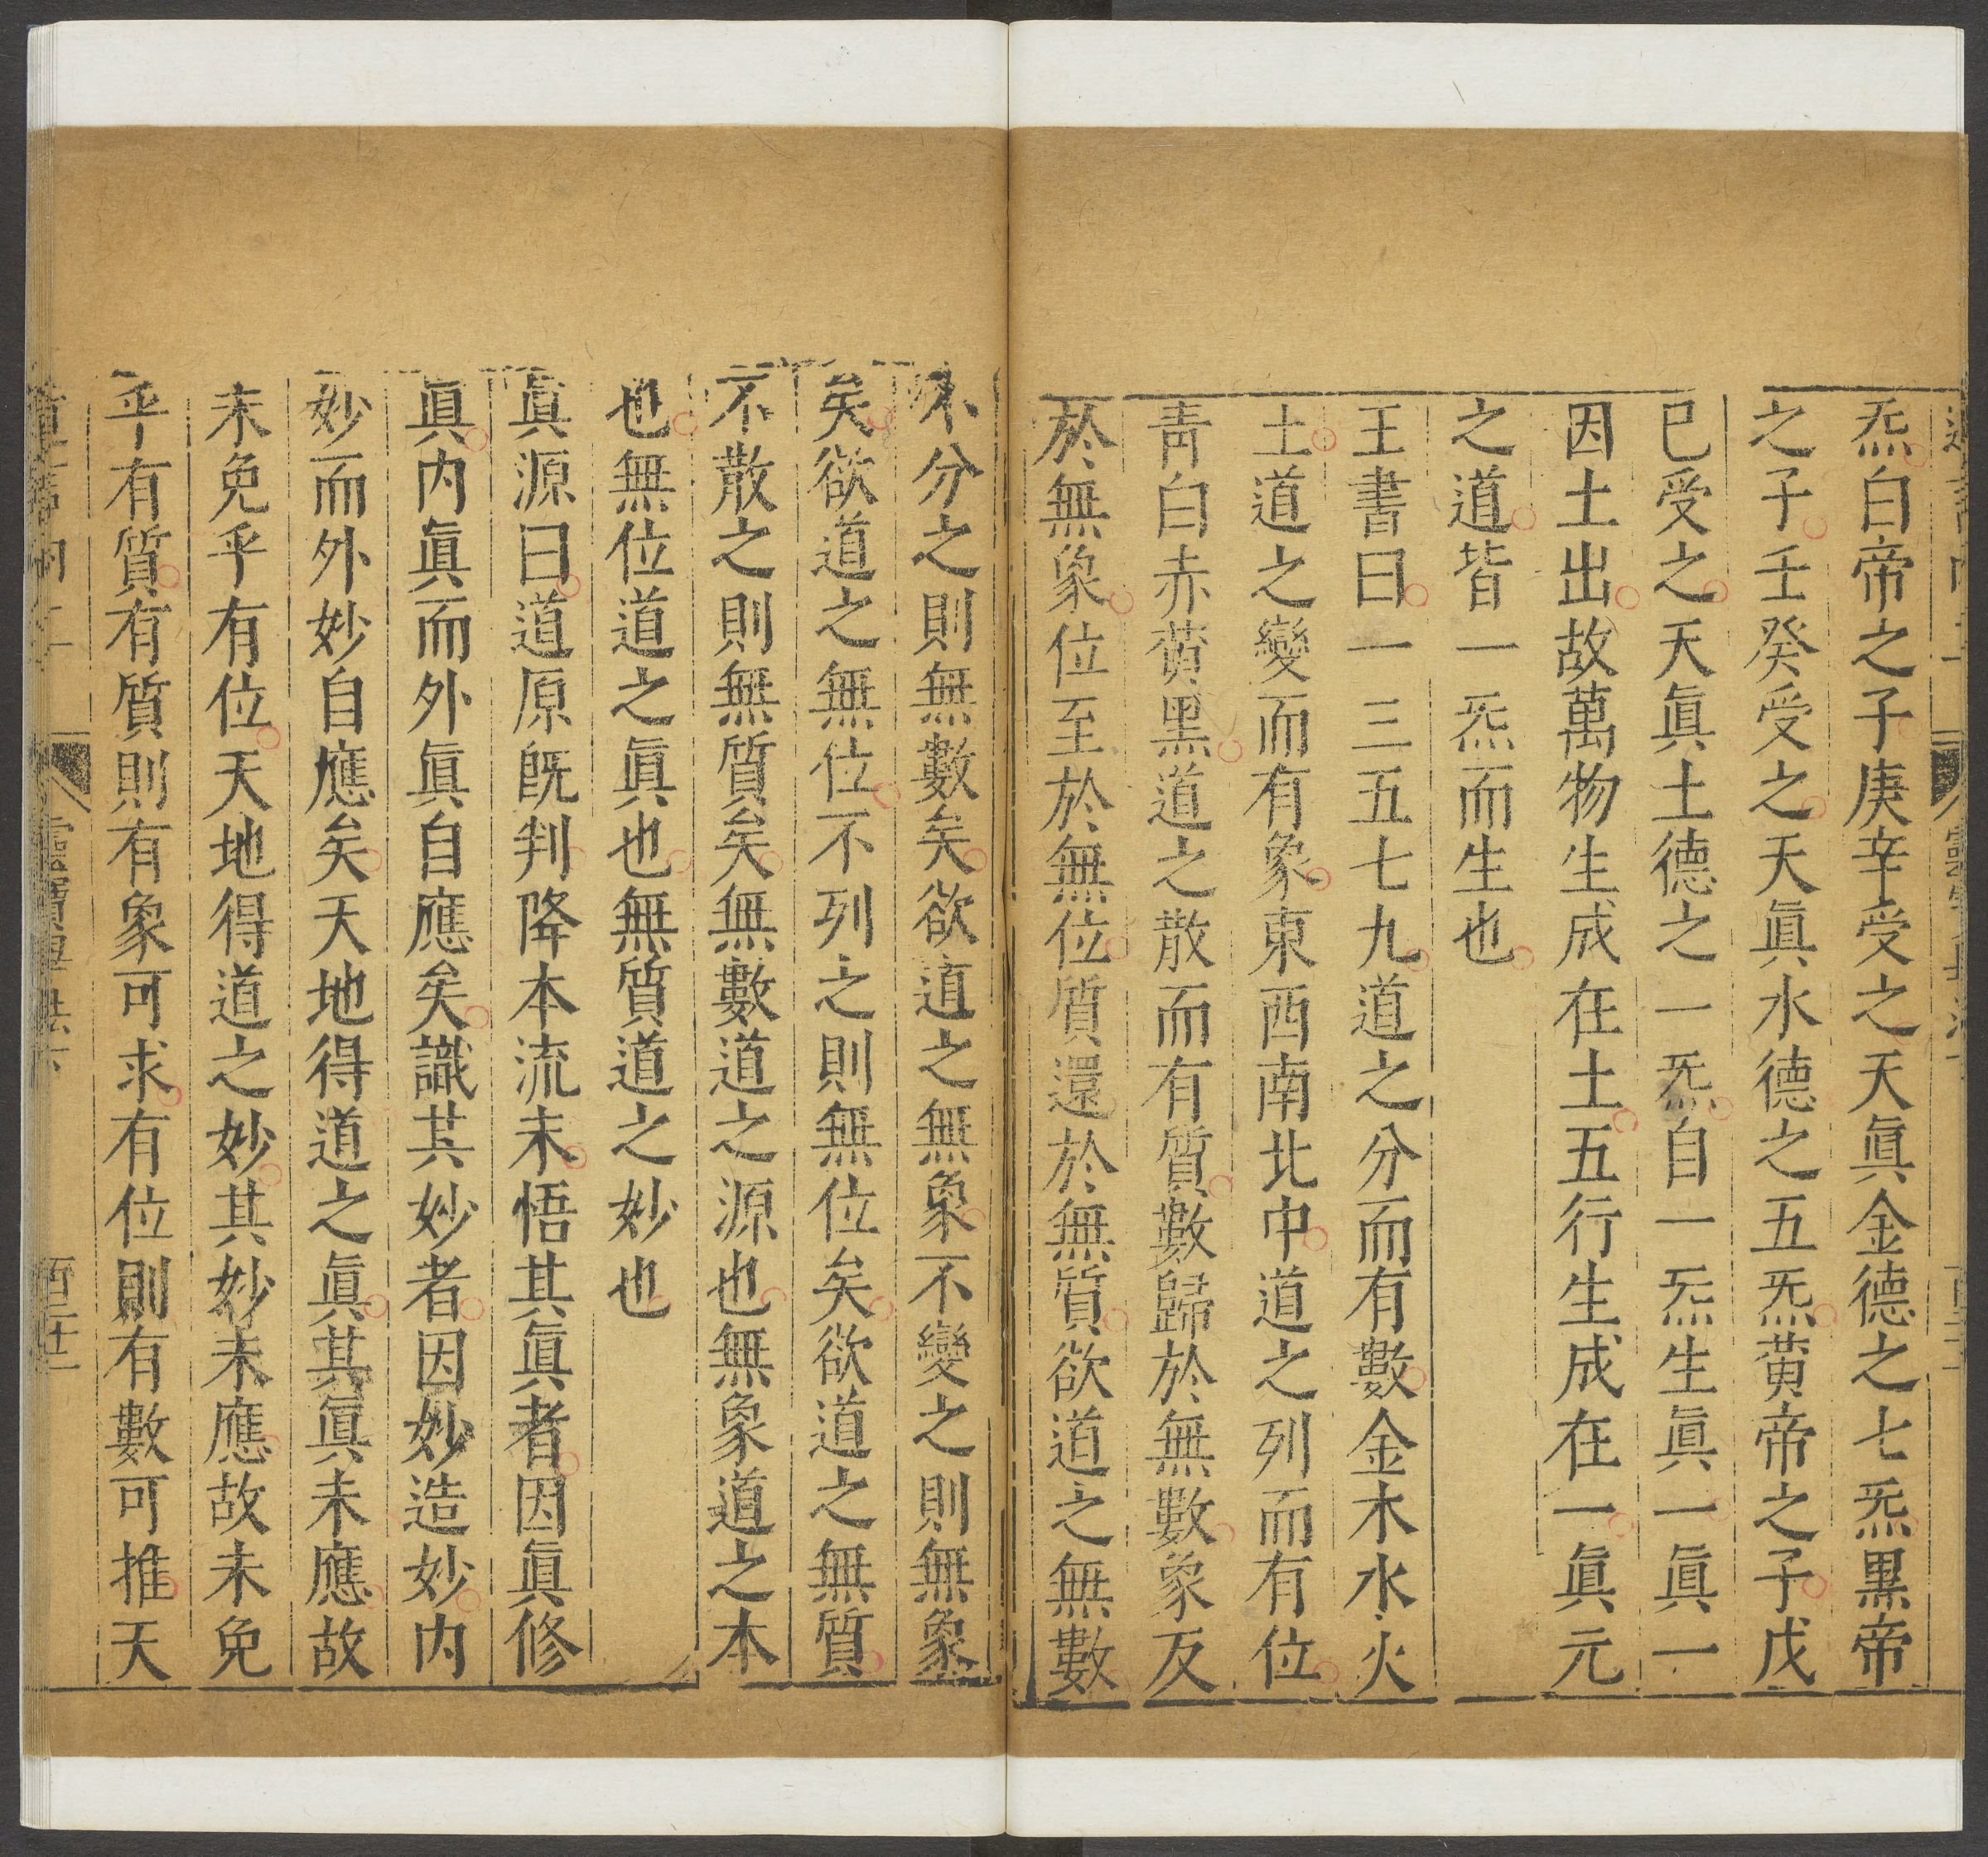 炁白帝之子庚辛受之天眞金德之七炁黒帝
之子壬癸受之天眞水德之五炁黄帝之子戊
巳受之天眞土德之一炁自一炁生眞一眞一
因土出故萬物生成在土五行生成在一眞元
之道皆一炁而生也
王書曰一三五七九道之分而有數金木水火
土道之變而有象東西南北中道之列而有位
青白赤黄黑道之散而有質數歸於無數象反
於無象位至於無位質還於無質欲道之無數
不分之則無數矣欲道之無象不變之則無象
矣欲道之無位不列之則無位矣欲道之無質
不散之則無質矣無數道之源也無象道之本
也無位道之眞也無質道之妙也
眞源曰道原旣判降本流末悟其眞者因眞修
眞内眞而外眞自應矣識其妙者因妙造妙内
妙而外妙自應矣天地得道之眞其眞未應故
未免乎有位天地得道之妙其妙未應故未免
乎有質有質則有象可求有位則有數可推天